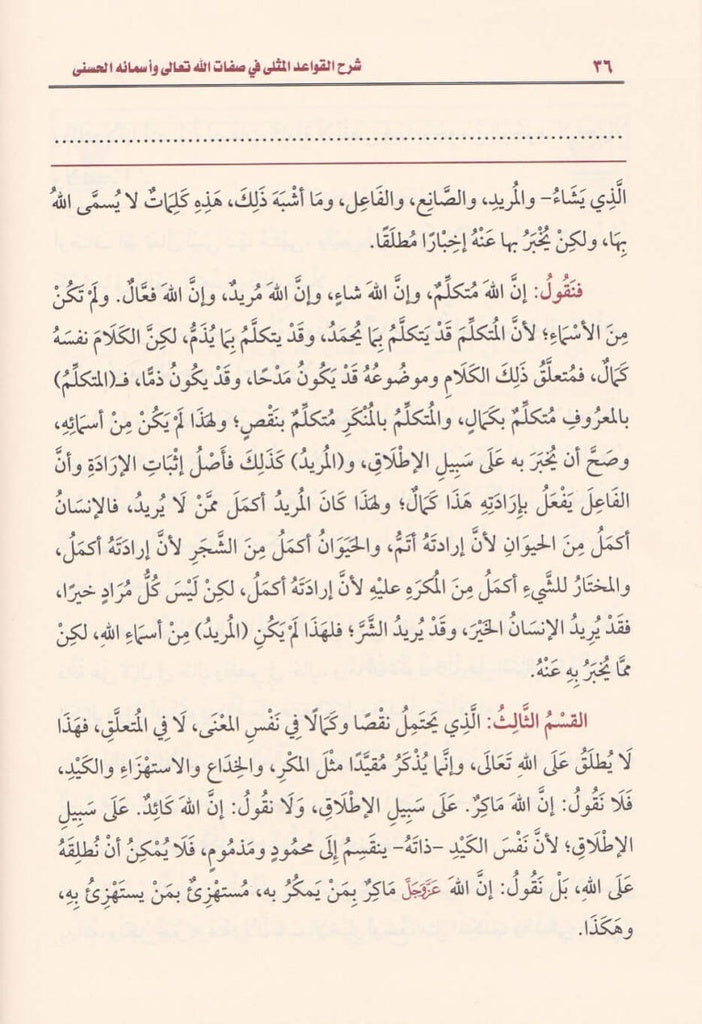 ٣٦ شرح القواعد المثلى في صفات الله تعالى وأسمائه الحسنى
........................................................................
الَّذِي يَشَاءُ- والمُريدِ، والصَّانِعِ، والفَاعِلِ، ومَا أشْبَهَ ذَلِكَ، هَذِهِ كَلِمَاتٌ لا يُسمَّى اللهُ
بِهَا، ولكِنْ يُخْبَرُ بها عَنْهُ إخِبْارًا مُطلَقًا.
فنَقُولُ: إنَّ اللهَ مُتكلِّمٌ، وإنَّ اللهَ شاءٍ، وإنَّ اللهَ مُريدٌ، وإنَّ اللهَ فعَّالٌ. ولَمْ تكُنْ
مِنَ الأسْمَاءِ؛ لأنَّ المُتكلِّمَ قَدْ يَتكلَّمُ بِمَا يُحمَدُ، وقَدْ يتكلَّمُ بِمَا يُذَمُّ، لكِنَّ الكَلَامَ نفسَهُ
كَمَالٌ، فمُتعلَّقُ ذَلِكَ الكَلَامِ وموضُوعُهُ قَدْ يَكُونُ مَدْحًا، وقَدْ يَكُونُ ذمًّا، فـ(المتكلِّمُ)
بالمعرُوفِ مُتكلِّمٌ بكَمَالٍ، والمُتكلِّمُ بالمُنْكَرِ مُتكلِّمٌ بنَقْصٍ؛ ولهَذَا لَمْ يَكُنْ مِنْ أسمَائِهِ،
وصَحَّ أن يُخبَرَ به عَلَى سَبِيلِ الإطْلَاقِ، و(المُريدُ) كَذَلِكَ فأَصْلُ إثْبَاتِ الإرَادَةِ وأنَّ
الفَاعِلَ يَفْعَلُ بإرَادَتِهِ هَذَا كَمَالٌ؛ ولهَذَا كَانَ المُريدُ أكمَلَ ممَّنْ لَا يُريدُ، فالإنسَانُ
أكمَلُ مِنَ الحيوَانِ لأنَّ إرادتَهُ أتَمُّ، والحَيَوَانُ أكمَلُ مِنَ الشَّجَرِ لأنَّ إرادَتَهُ أكمَلُ،
والمختَارُ للشَّيءِ أكمَلُ مِنَ المُكرَهِ عليْهِ لأنَّ إرادَتَهُ أكمَلُ، لكِنْ لَيْسَ كُلُّ مُرَادٍ خيرًا،
فقَدْ يُرِيدُ الإنسَانُ الخَيْرَ، وقَدْ يُريدُ الشَّرَّ؛ فلهَذَا لَمْ يَكُنِ (المُريدُ) مِنْ أسمَاءِ اللهِ، لكِنْ
ممَّا يُخبَرُ بِهِ عَنْهُ.
القسْمُ الثَّالِثُ: الَّذِي يَحتَمِلُ نقْصًا وكَمَالًا فِي نَفْسِ المعْنَى، لَا فِي المُتعلَّقِ، فهَذَا
لَا يُطلَقُ عَلَى اللهِ تَعَالَى، وإنَّما يُذْكَرُ مُقيَّدًا مثلَ المكْرِ، والخِدَاعِ والاستهْزَاءِ والكَيْدِ،
فَلَا نَقُولُ: إنَّ اللهَ مَاكِرٌ. عَلَى سَبِيلِ الإطْلَاقِ، وَلَا نقُولُ: إنَّ اللهَ كَائِدٌ. عَلَى سَبِيلِ
الإطْلَاقِ؛ لأنَّ نَفْسَ الكَيْدِ -ذاتَهُ- ينقَسِمُ إلَى محمُودٍ ومَذمُومٍ، فَلَا يُمْكِنُ أنْ نُطلِقَهُ
عَلَى اللهِ، بَلْ نَقُولُ: إنَّ اللهَ عَزَّوَجَلَّ مَاكرٌ بِمَنْ يَمكرُ به، مُستهْزِئٌ بمَنْ يستَهْزِئُ بِهِ،
وهَكَذَا.